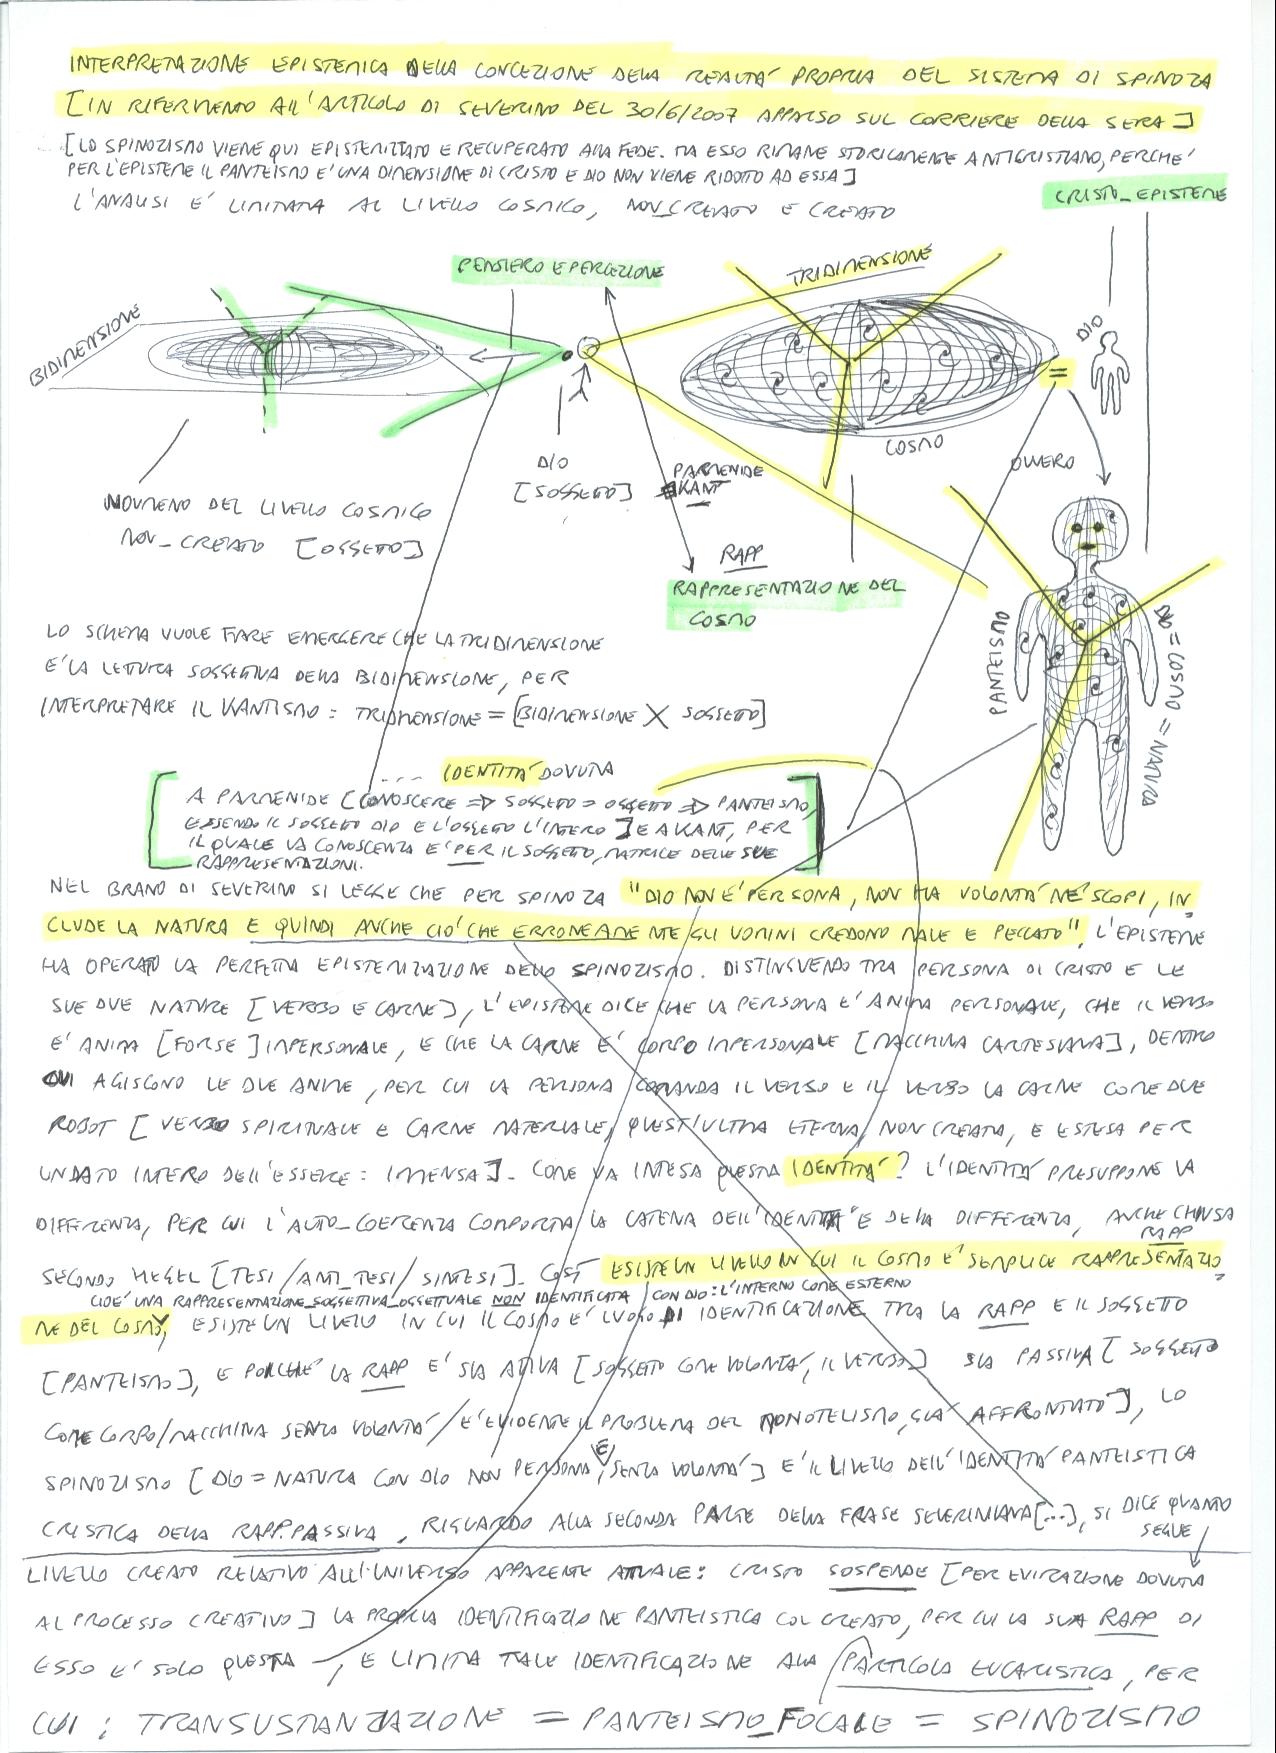 INTERPRETAZIONE EPISTEMICA DELLA CONCEZIONE DELLA REALTA' PROPRIA DEL SISTEMA DI SPINOZA
[IN RIFERIMENTO ALL'ARTICOLO DI SEVERINO DEL 30/6/2007 APPARSO SUL CORRIERE DELLA SERA]
[LO SPINOZISMO VIENE QUI EPISTEMIZZATO E RECUPERATO ALLA FEDE. MA ESSO RIMANE STORICAMENTE ANTICRISTIANO, PERCHE'
PER L'EPISTEME IL PANTEISMO E' UNA DIMENSIONE DI CRISTO E DIO NON VIENE RIDOTTO AD ESSA]
L'ANALISI E' LIMITATA AL LIVELLO COSMICO, NON_CREATO E CREATO
CRISTO_EPISTEME
PENSIERO E PERCEZIONE
TRIDIMENSIONE
BIDIMENSIONE
DIO
=
COSMO
OVVERO
DIO
[SOGGETTO]
PARMENIDE
KANT
NOUMENO DEL LIVELLO COSMICO
NON_CREATO [OGGETTO]
RAPP
RAPPRESENTAZIONE DEL
COSMO
PANTEISMO
DIO = COSMO = NATURA
LO SCHEMA VUOLE FARE EMERGERE CHE LA TRIDIMENSIONE
E' LA LETTURA SOGGETTIVA DELLA BIDIMENSIONE, PER
INTERPRETARE IL KANTISMO: TRIDIMENSIONE = [BIDIMENSIONE X SOGGETTO]
.... IDENTITA' DOVUTA
A PARMENIDE [CONOSCERE => SOGGETTO = OGGETTO => PANTEISMO,
ESSENDO IL SOGGETTO DIO E L'OGGETTO L'INTERO] E A KANT, PER
IL QUALE LA CONOSCENZA E' PER IL SOGGETTO, MATRICE DELLE SUE
RAPPRESENTAZIONI.
NEL BRANO DI SEVERINO SI LEGGE CHE PER SPINOZA "DIO NON E' PERSONA, NON HA VOLONTA' NE' SCOPI, IN
CLUDE LA NATURA E QUINDI ANCHE CIO' CHE ERRONEAMENTE GLI UOMINI CREDONO MALE E PECCATO". L'EPISTEME
HA OPERATO LA PERFETTA EPISTEMIZZAZIONE DELLO SPINOZISMO. DISTINGUENDO TRA PERSONA DI CRISTO E LE
SUE DUE NATURE [VERBO E CARNE], L'EPISTEME DICE CHE LA PERSONA E' ANIMA PERSONALE, CHE IL VERBO
E' ANIMA [FORSE] IMPERSONALE, E CHE LA CARNE E' CORPO IMPERSONALE [MACCHINA CARTESIANA], DENTRO
CUI AGISCONO LE DUE ANIME, PER CUI LA PERSONA COMANDA IL VERBO E IL VERBO LA CARNE COME DUE
ROBOT [VERBO SPIRITUALE E CARNE MATERIALE, QUEST'ULTIMA ETERNA, NON CREATA, E ESTESA PER
UN DATO INTERO DELL'ESSERE: IMMENSA]. COME VA INTESA QUESTA IDENTITA'? L'IDENTITA' PRESUPPONE LA
DIFFERENZA, PER CUI L'AUTO_COERENZA COMPORTA LA CATENA DELL'IDENTITA' E DELLA DIFFERENZA, ANCHE CHIUSA
SECONDO HEGEL [TESI/ANTI_TESI/SINTESI]. COSI' ESISTE UN LIVELLO IN CUI IL COSMO E' SEMPLICE RAPPRESENTAZIO
RAPP
CIOE' UNA RAPPRESENTAZIONE_SOGGETTIVA_OGGETTUALE NON IDENTIFICATA CON DIO: L'INTERNO COME ESTERNO
NE DEL COSMO, ESISTE UN LIVELLO IN CUI IL COSMO E' LUOGO DI IDENTIFICAZIONE TRA LA RAPP E IL SOGGETTO
[PANTEISMO], E POICHE' LA RAPP E' SIA ATTIVA [SOGGETTO COME VOLONTA', IL VERBO] SIA PASSIVA [SOGGETTO
COME CORPO/MACCHINA SENZA VOLONTA'/E' EVIDENTE IL PROBLEMA DEL MONOTELISMO, GIA' AFFRONTATO], LO
SPINOZISMO [DIO = NATURA CON DIO NON PERSONA E SENZA VOLONTA'] E' IL LIVELLO DELL'IDENTITA' PANTEISTICA
CRISTICA DELLA RAPP. PASSIVA. RIGUARDO ALLA SECONDA PARTE DELLA FRASE SEVERINIANA [...], SI DICE QUANTO
SEGUE
LIVELLO CREATO RELATIVO ALL'UNIVERSO APPARENTE ATTUALE: CRISTO SOSPENDE [PER EVIRAZIONE DOVUTA
AL PROCESSO CREATIVO] LA PROPRIA IDENTIFICAZIONE PANTEISTICA COL CREATO, PER CUI LA SUA RAPP DI
ESSO E' SOLO QUESTA, E LIMITA TALE IDENTIFICAZIONE ALLA PARTICOLA EUCARISTICA, PER
CUI: TRANSUSTANZIAZIONE = PANTEISMO_FOCALE = SPINOZISMO